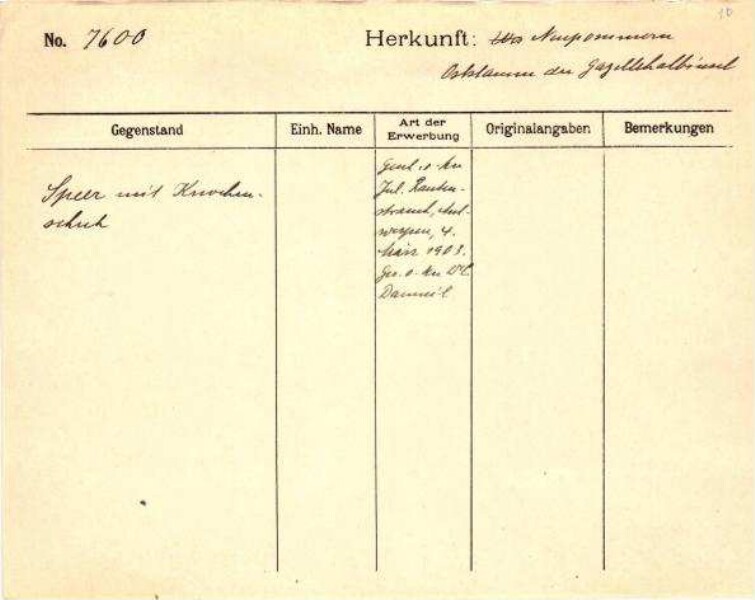 10
No. 7600 Herkunft: Neupommern
Oststamm der Gazellehalbinsel
Gegenstand Einh. Name Art der Erwerbung Originalangaben Bemerkungen
Speer mit Knochen-
schuh
v. Hrn
Jul. Rauten-
strauch, Ant-
werpen, 4.
März 1903.
Ges. v. Hrn